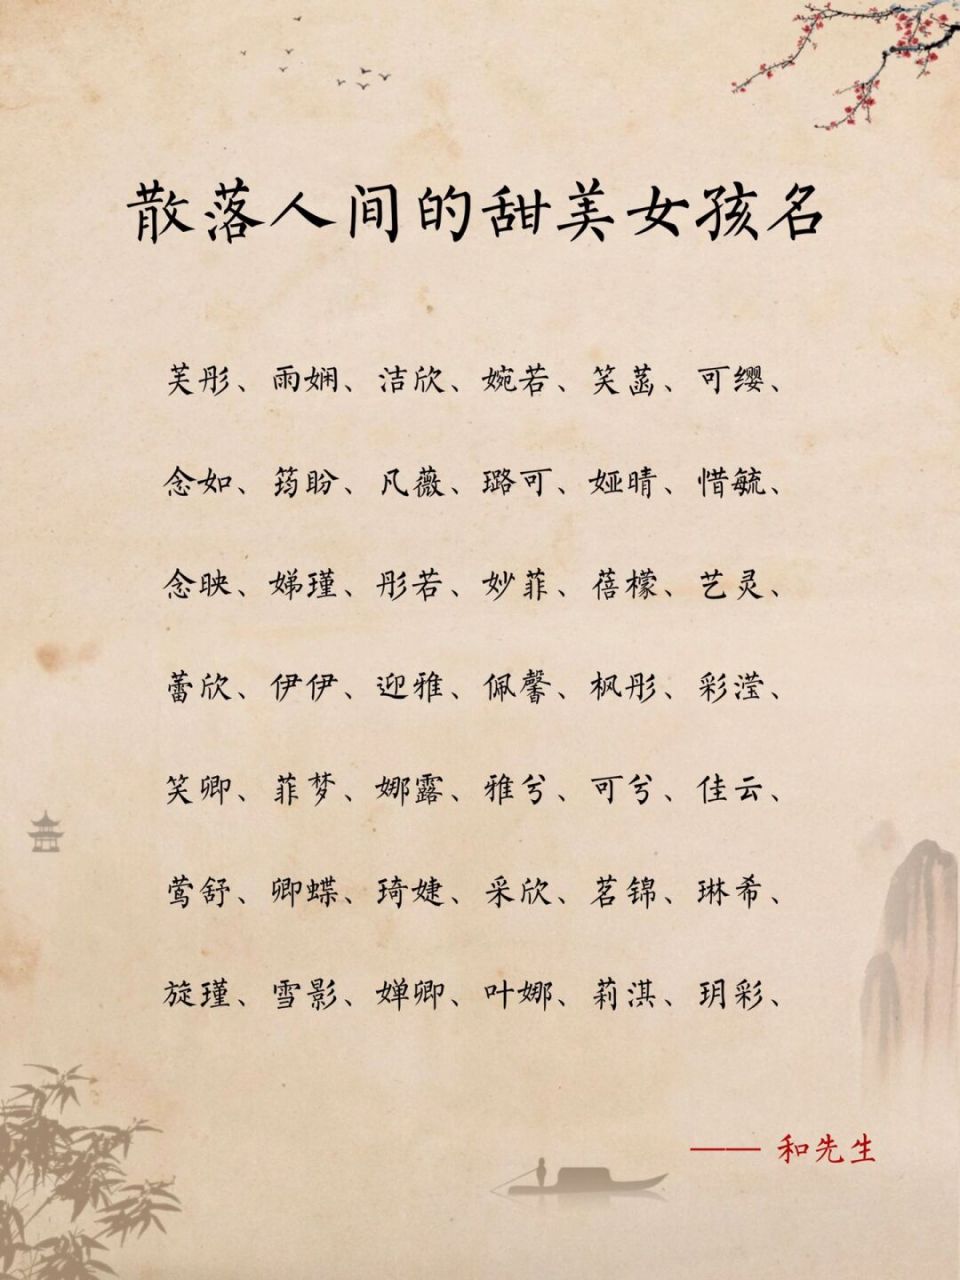 散落人间的甜美女孩名
芙彤、雨娴、洁欣、婉若、笑菡、可缨、
念如、筠盼、凡薇、璐可、娅晴、惜毓、
念映、娣瑾、彤若、妙菲、蓓檬、艺灵、
蕾欣、伊伊、迎雅、佩馨、枫彤、彩滢、
笑卿、菲梦、娜露、雅兮、可兮、佳云、
莺舒、卿蝶、琦婕、采欣、茗锦、琳希、
旋瑾、雪影、婵卿、叶娜、莉淇、玥彩、
—— 和先生